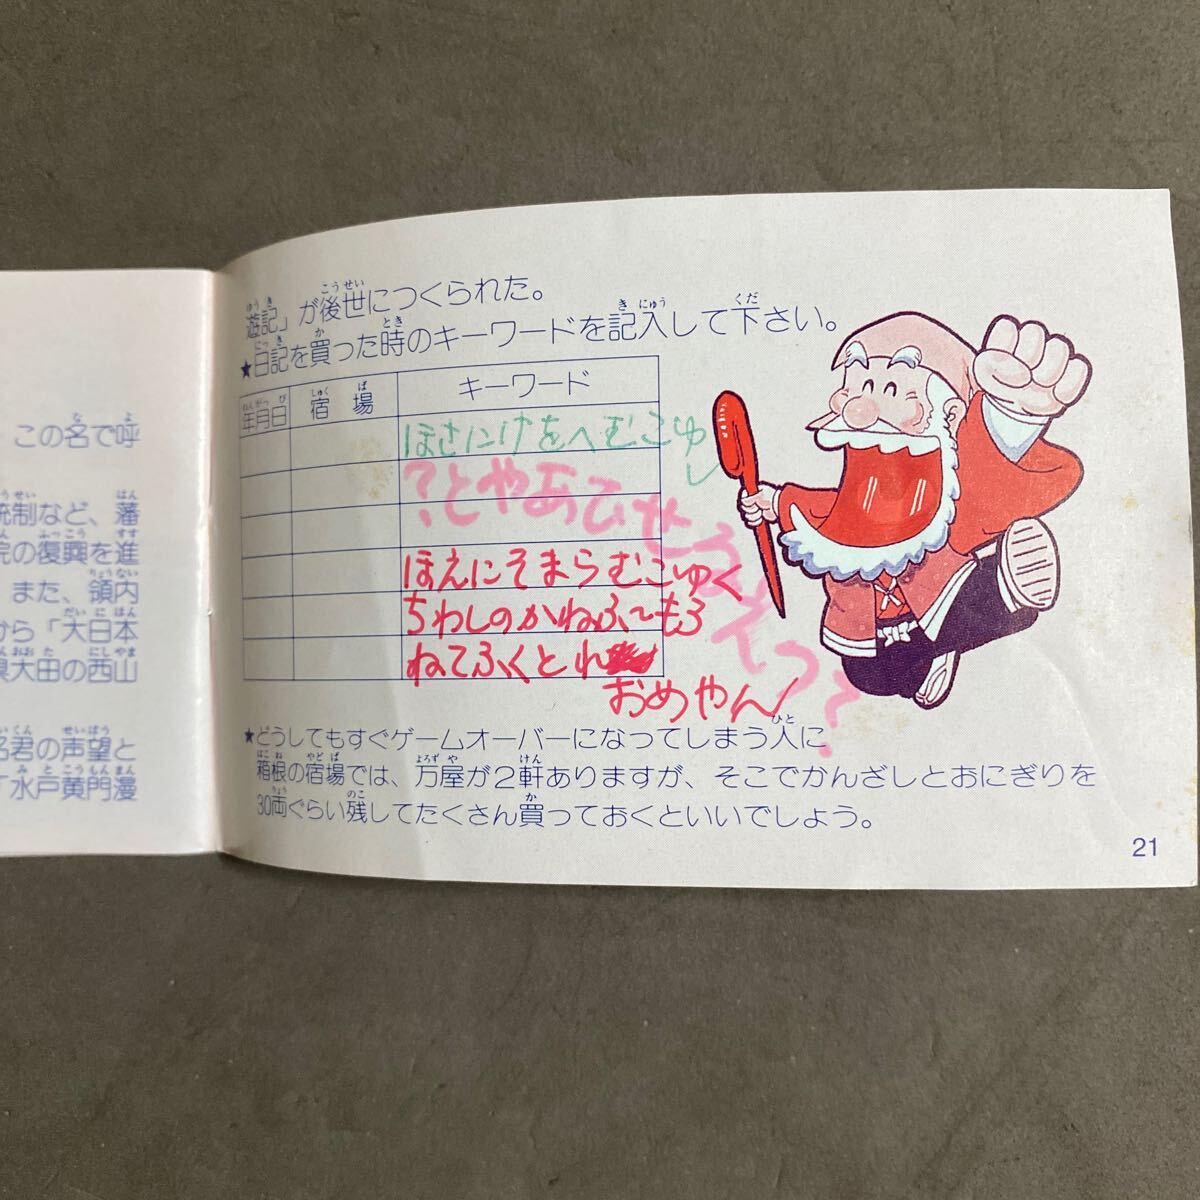 この名で呼
統制など、藩
院の復興を進
また、領内
から「大日本
県大田の西山
名君の声望と
「水戸黄門漫
遊記」が後世につくられた。
★日記を買った時のキーワードを記入して下さい。
年月日 宿場 キーワード
ほさにけをへむこゆ
し
?とやあひせ
ほえにそまらむこゆく
ちわしのかねふ〜もろ
ねてふくとれ
おめやん
★どうしてもすぐゲームオーバーになってしまう人に
箱根の宿場では、万屋が2軒ありますが、そこでかんざしとおにぎりを
30両ぐらい残してたくさん買っておくといいでしょう。
21